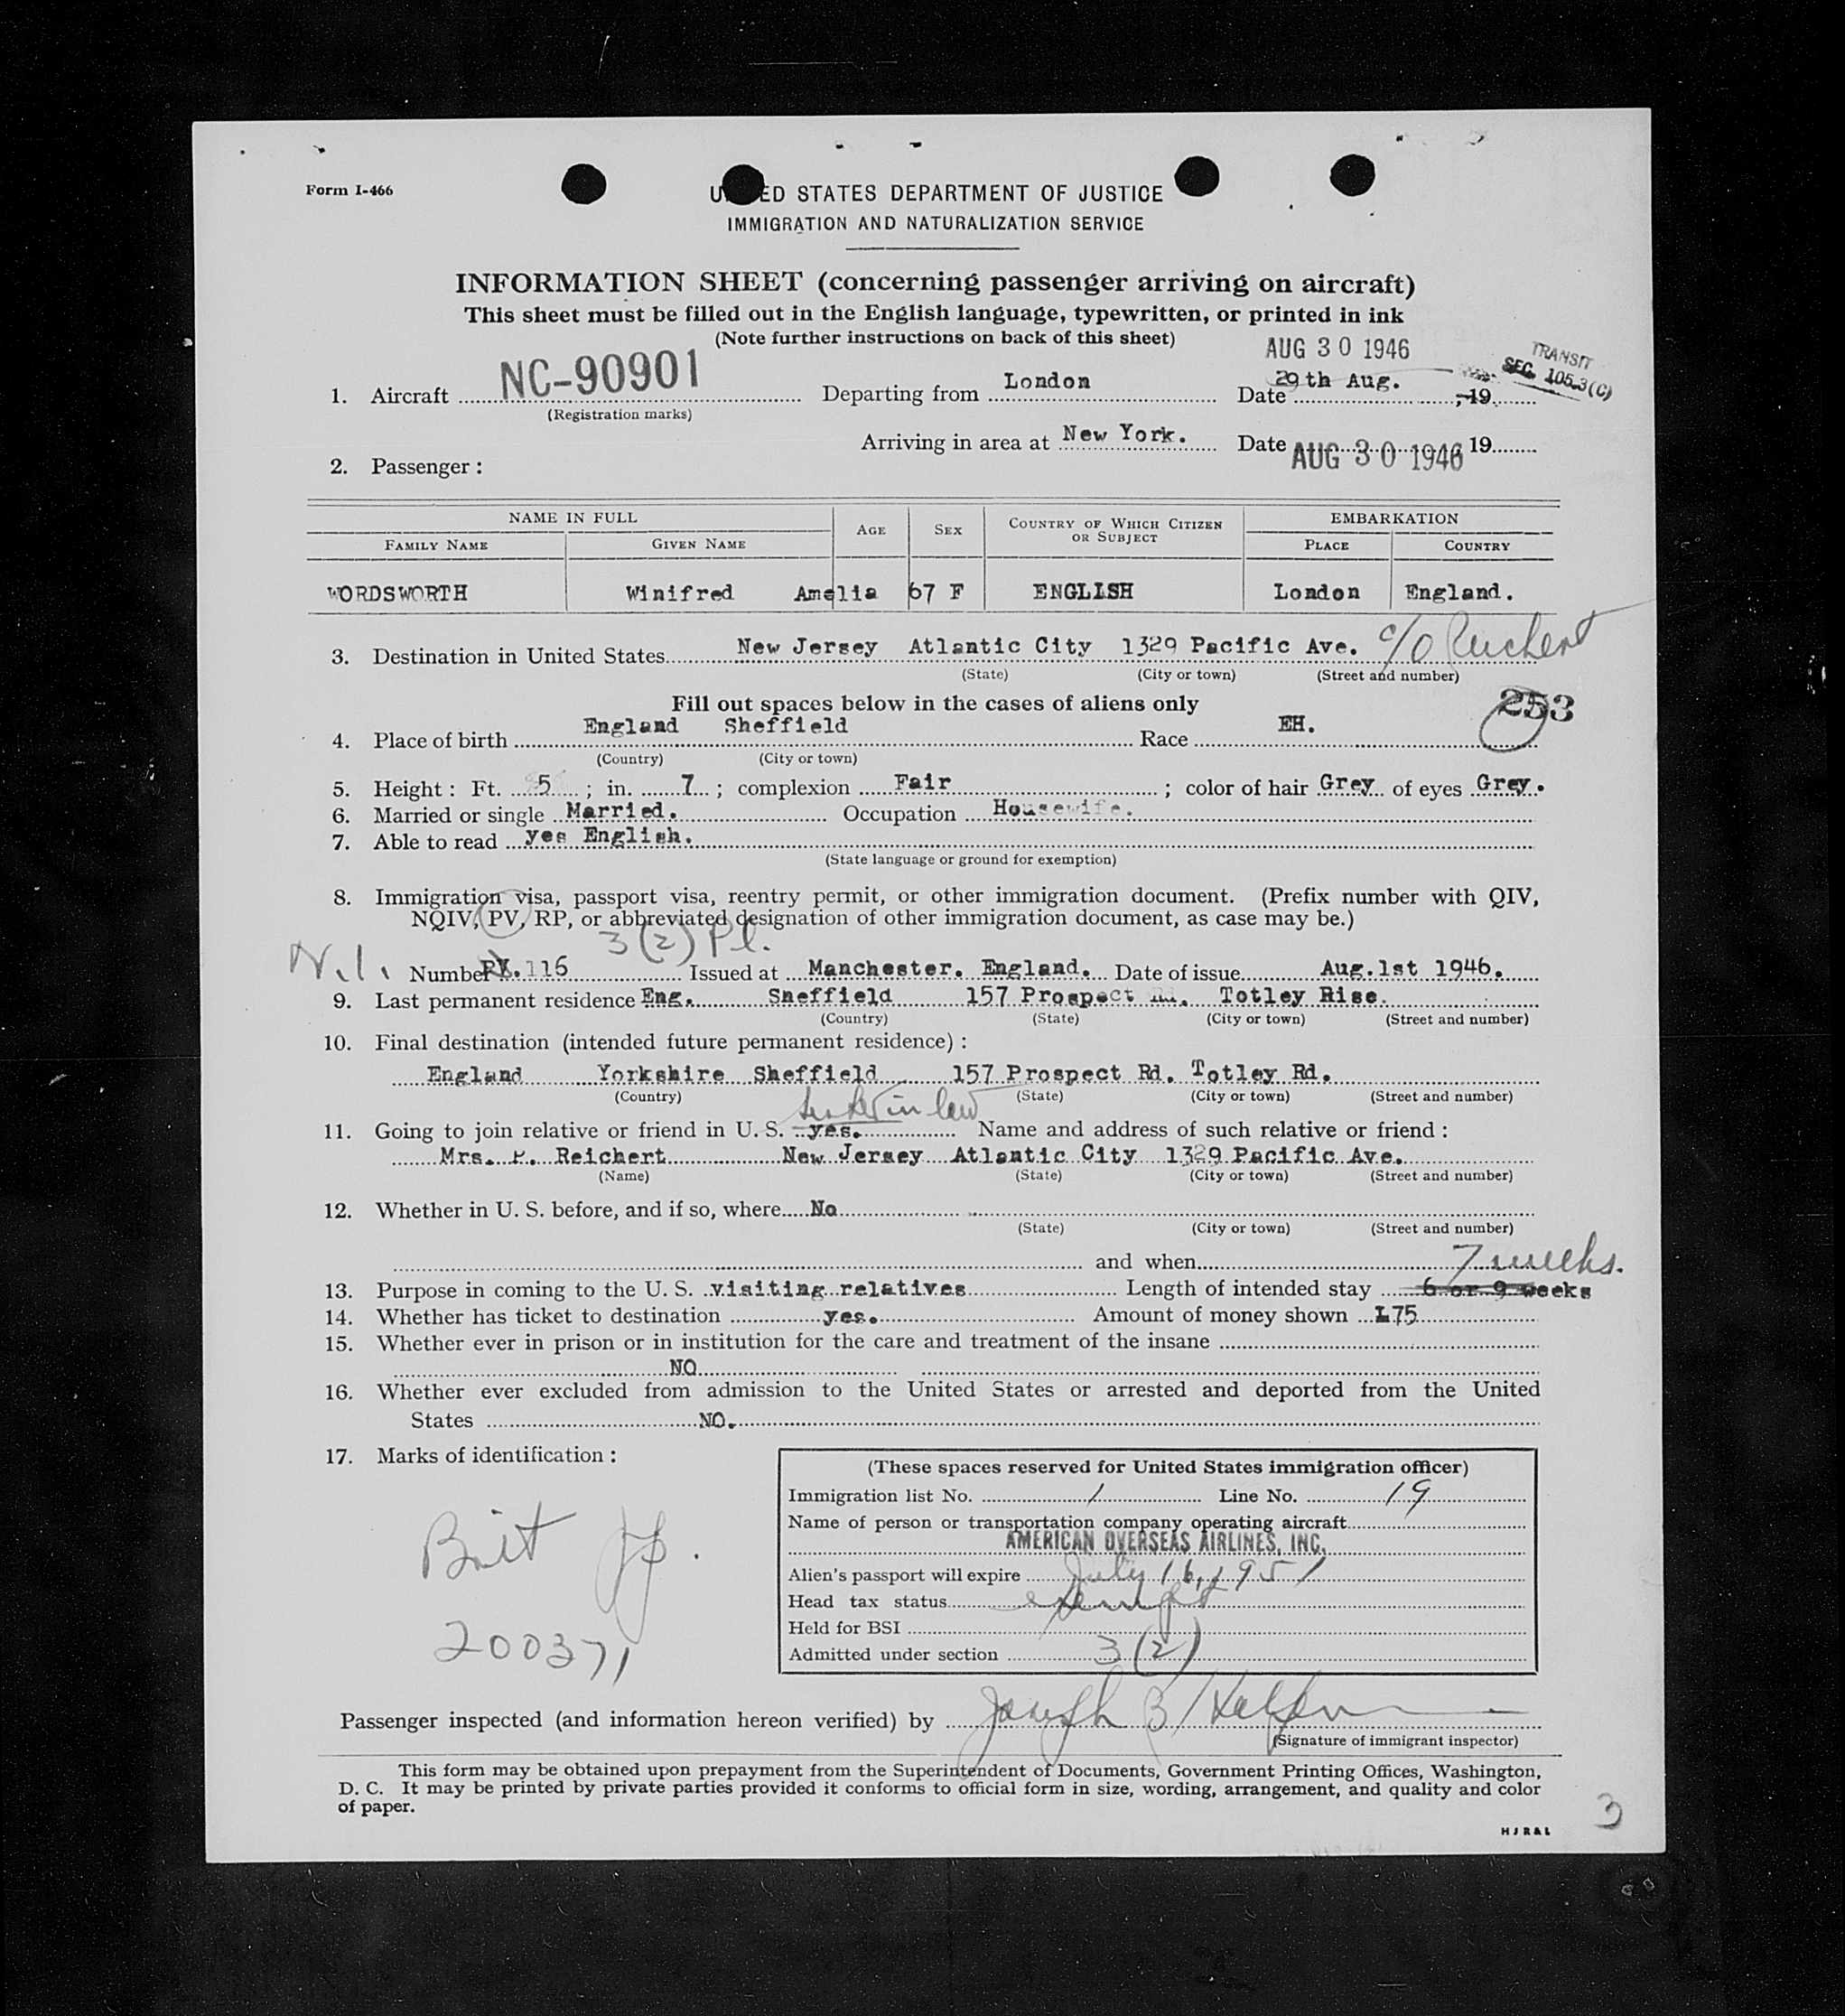 Form I-466
UNITED STATES DEPARTMENT OF JUSTICE
IMMIGRATION AND NATURALIZATION SERVICE
INFORMATION SHEET (concerning passenger arriving on aircraft)
This sheet must be filled out in the English language, typewritten, or printed in ink
(Note further instructions on back of this sheet)
AUG 30 1946
TRANSIT
SEC. 105.3(C)
1. Aircraft NC-90901 Departing from London Date 29th Aug. , 19
(Registration marks)
Arriving in area at New York. Date AUG 30 1946 19
2. Passenger :
NAME IN FULL AGE SEX COUNTRY OF WHICH CITIZEN OR SUBJECT EMBARKATION
FAMILY NAME GIVEN NAME PLACE COUNTRY
WORDSWORTH Winifred Amelia 67 F ENGLISH London England.
3. Destination in United States New Jersey Atlantic City 1329 Pacific Ave. c/o Reichert
(State) (City or town) (Street and number)
Fill out spaces below in the cases of aliens only
253
4. Place of birth England Sheffield Race EH.
(Country) (City or town)
5. Height : Ft. 5 ; in. 7 ; complexion Fair ; color of hair Grey of eyes Grey.
6. Married or single Married. Occupation Housewife.
7. Able to read yes English.
(State language or ground for exemption)
8. Immigration visa, passport visa, reentry permit, or other immigration document. (Prefix number with QIV,
NQIV, PV, RP, or abbreviated designation of other immigration document, as case may be.)
3(2) Pl.
N.I. Number PV.116 Issued at Manchester. England. Date of issue Aug.1st 1946.
9. Last permanent residence Eng. Sheffield 157 Prospect Rd. Totley Rise.
(Country) (State) (City or town) (Street and number)
10. Final destination (intended future permanent residence) :
England Yorkshire Sheffield 157 Prospect Rd. Totley Rd.
(Country) (State) (City or town) (Street and number)
sister in law
11. Going to join relative or friend in U. S. yes. Name and address of such relative or friend :
Mrs. Reichert New Jersey Atlantic City 1329 Pacific Ave.
(Name) (State) (City or town) (Street and number)
12. Whether in U. S. before, and if so, where No
(State) (City or town) (Street and number)
and when
7 weeks.
13. Purpose in coming to the U. S. visiting relatives Length of intended stay 6 or 9 weeks
14. Whether has ticket to destination yes. Amount of money shown £75
15. Whether ever in prison or in institution for the care and treatment of the insane
NO
16. Whether ever excluded from admission to the United States or arrested and deported from the United
States NO.
17. Marks of identification :
Brit pp.
200371
(These spaces reserved for United States immigration officer)
Immigration list No. 1 Line No. 19
Name of person or transportation company operating aircraft
AMERICAN OVERSEAS AIRLINES, INC.
Alien's passport will expire July 16, 1951
Head tax status exempt
Held for BSI
Admitted under section 3(2)
Passenger inspected (and information hereon verified) by Joseph B Halpern
(Signature of immigrant inspector)
This form may be obtained upon prepayment from the Superintendent of Documents, Government Printing Offices, Washington,
D. C. It may be printed by private parties provided it conforms to official form in size, wording, arrangement, and quality and color
of paper.
HJR&L
3